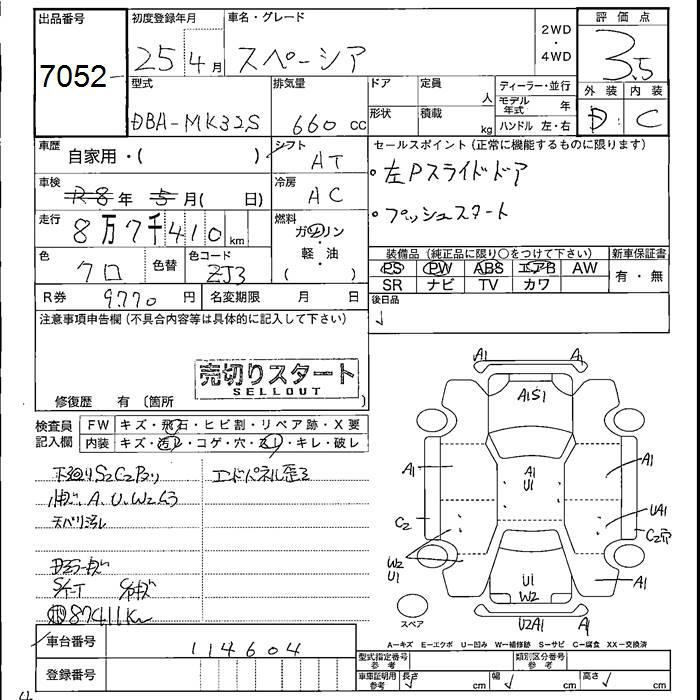 出品番号
7052
初度登録年月
25 4月
車名・グレード
スペーシア
2WD
・
4WD
評価点
3.5
外装 内装
D C
型式
DBA-MK32S
排気量
660 cc
ドア
定員
人
形状
積載
kg
ディーラー・並行
モデル年式 年
ハンドル 左・右
車歴
自家用・( )
シフト
AT
セールスポイント (正常に機能するものに限ります)
・左Pスライドドア
・プッシュスタート
車検
R8年 5月( 日)
冷房
AC
走行
8万7千410 km
燃料
ガソリン
・
軽・油
( )
色
クロ
色替
色コード
ZJ3
装備品 (純正品に限り○をつけて下さい)
新車保証書
PS PW ABS エアB AW
SR ナビ TV カワ
有・無
R券 9770 円
名変期限 月 日
後日品
注意事項申告欄 (不具合内容等は具体的に記入して下さい)
売切りスタート
SELLOUT
修復歴 有 〔箇所 〕
検査員
記入欄
FW キズ・飛石・ヒビ割・リペア跡・X要
内装 キズ・汚レ・コゲ・穴・スレ・キレ・破レ
下廻りS2C2有り
エンドパネル歪ミ
キズ、A、U、W2ムラ
天バリ汚レ
87411Km
車台番号
114604
登録番号
A1 A1
A1S1
A1
A1
U1
A1
C2
UA1
C2穴
W2
U1
U1
W2
A1
U2A1 A1
スペア
A=キズ E=エクボ U=凹み W=補修跡 S=サビ C=腐食 XX=交換済
型式指定番号
参考
類別区分番号
参考
車庫証明用
参考
長さ cm
幅 cm
高さ cm